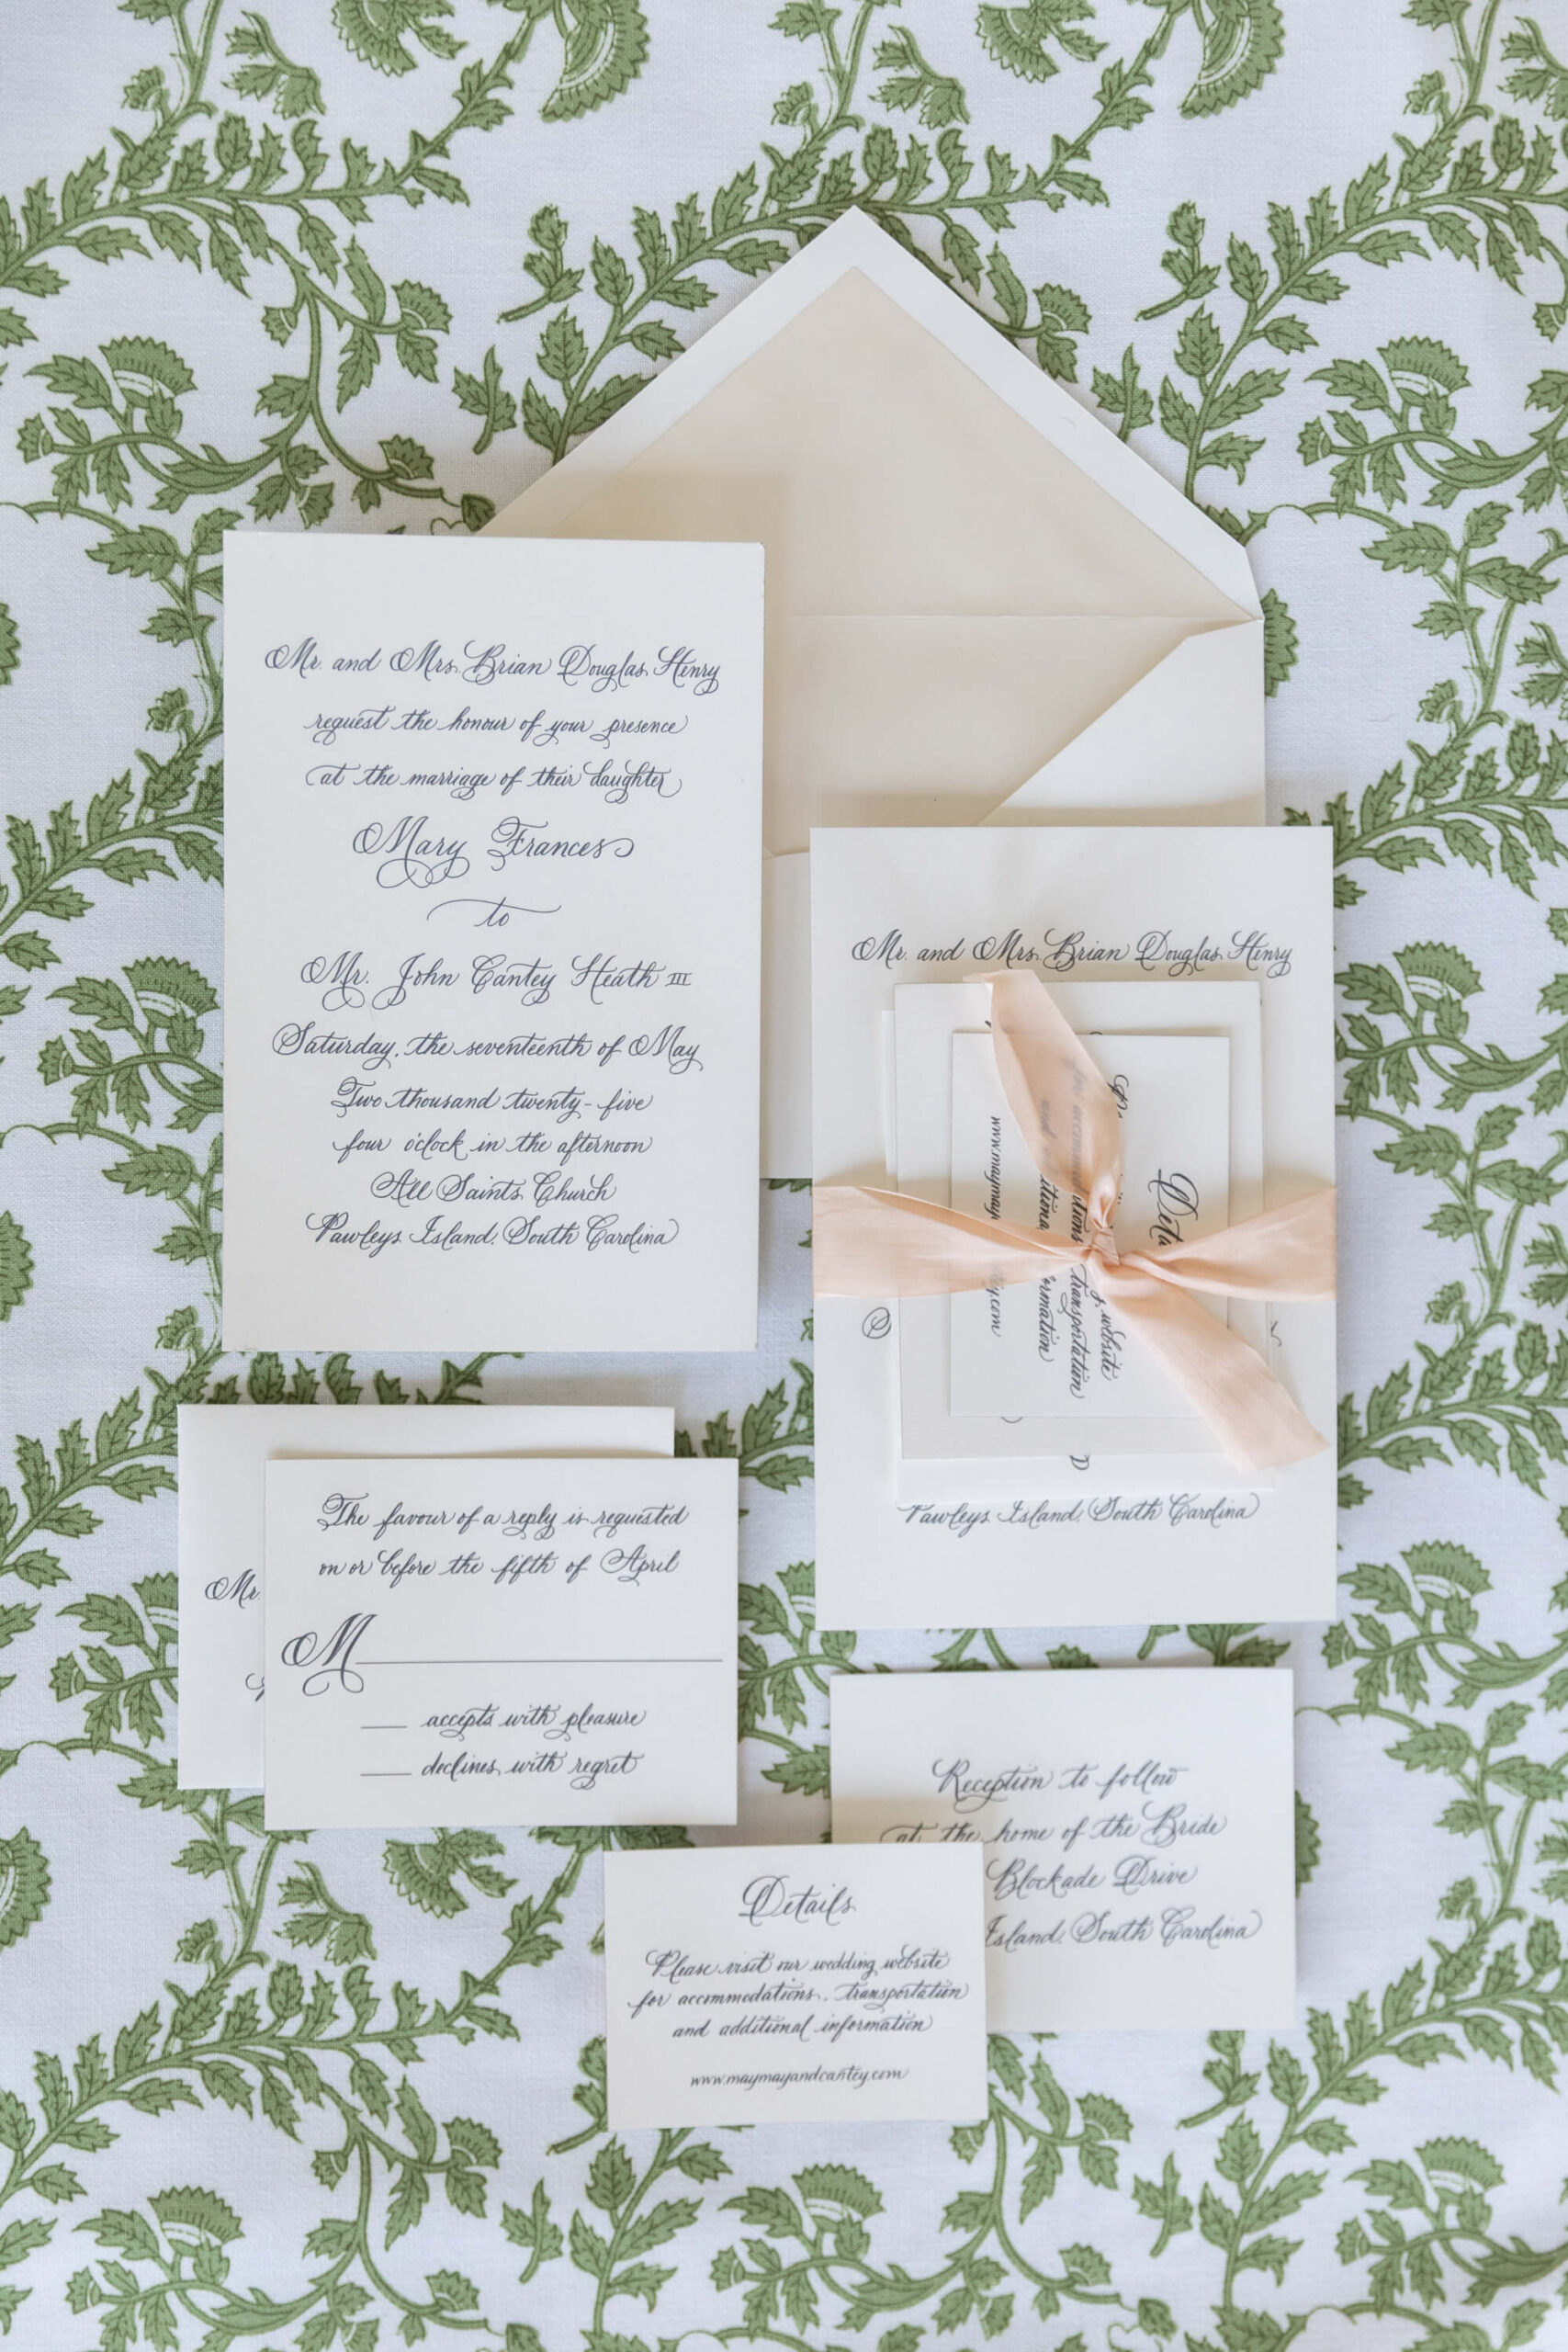 Mr. and Mrs. Brian Douglas Henry
request the honour of your presence
at the marriage of their daughter
Mary Frances
to
Mr. John Cantey Heath III
Saturday, the seventeenth of May
Two thousand twenty-five
four o'clock in the afternoon
All Saints Church
Pawleys Island, South Carolina
Mr. and Mrs. Brian Douglas Henry
Details
website
transportation
www.maymay
y.com
Pawleys Island, South Carolina
Mr.
The favour of a reply is requested
on or before the fifth of April
M
accepts with pleasure
declines with regret
Reception to follow
at the home of the Bride
Blockade Drive
Island, South Carolina
Details
Please visit our wedding website
for accommodations, transportation
and additional information
www.maymayandcantey.com